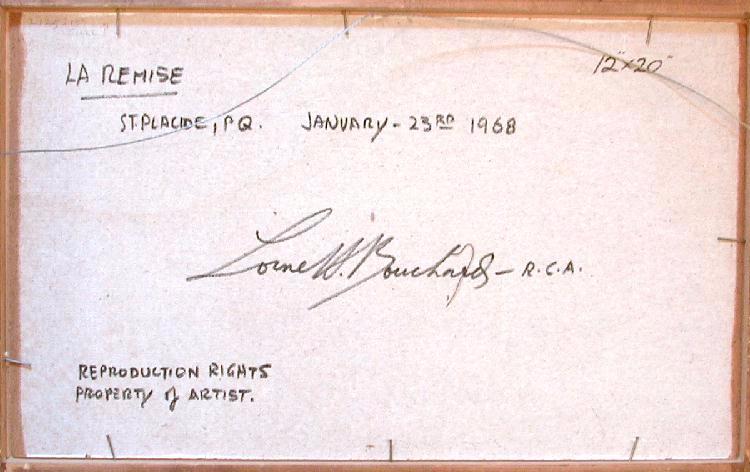 LA REMISE
12"x20"
ST. PLACIDE, P.Q. JANUARY - 23RD 1968
Lorne H. Bouchard - R.C.A.
REPRODUCTION RIGHTS
PROPERTY of ARTIST.